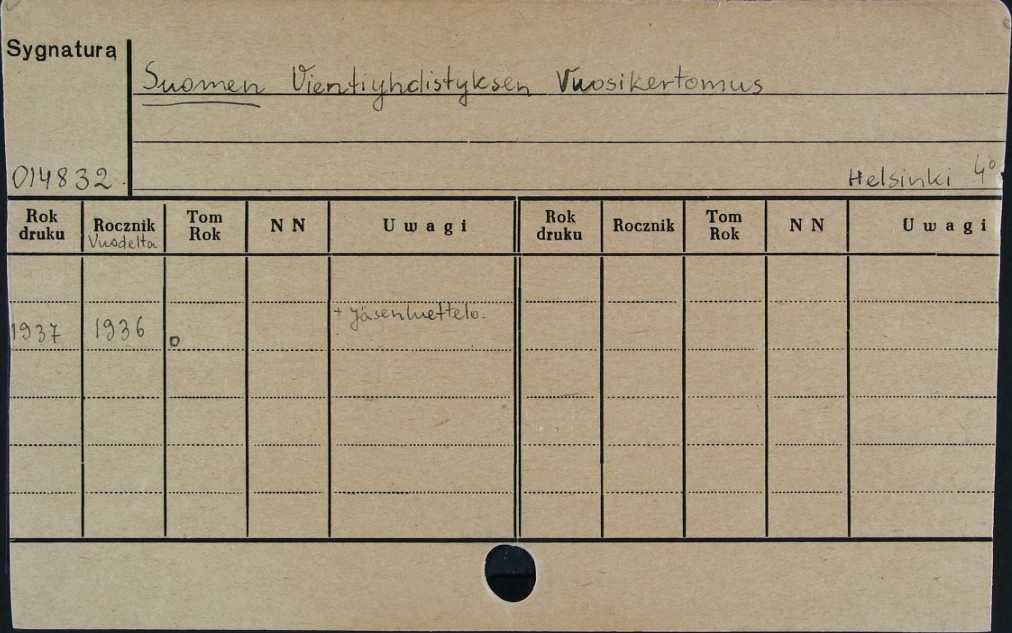 Sygnatura
Suomen Vientiyhdistyksen Vuosikertomus
014832
Helsinki 4°
Rok druku Rocznik Vuodelta Tom Rok N N Uwagi Rok druku Rocznik Tom Rok N N Uwagi
+ jäsenluettelo.
1937 1936